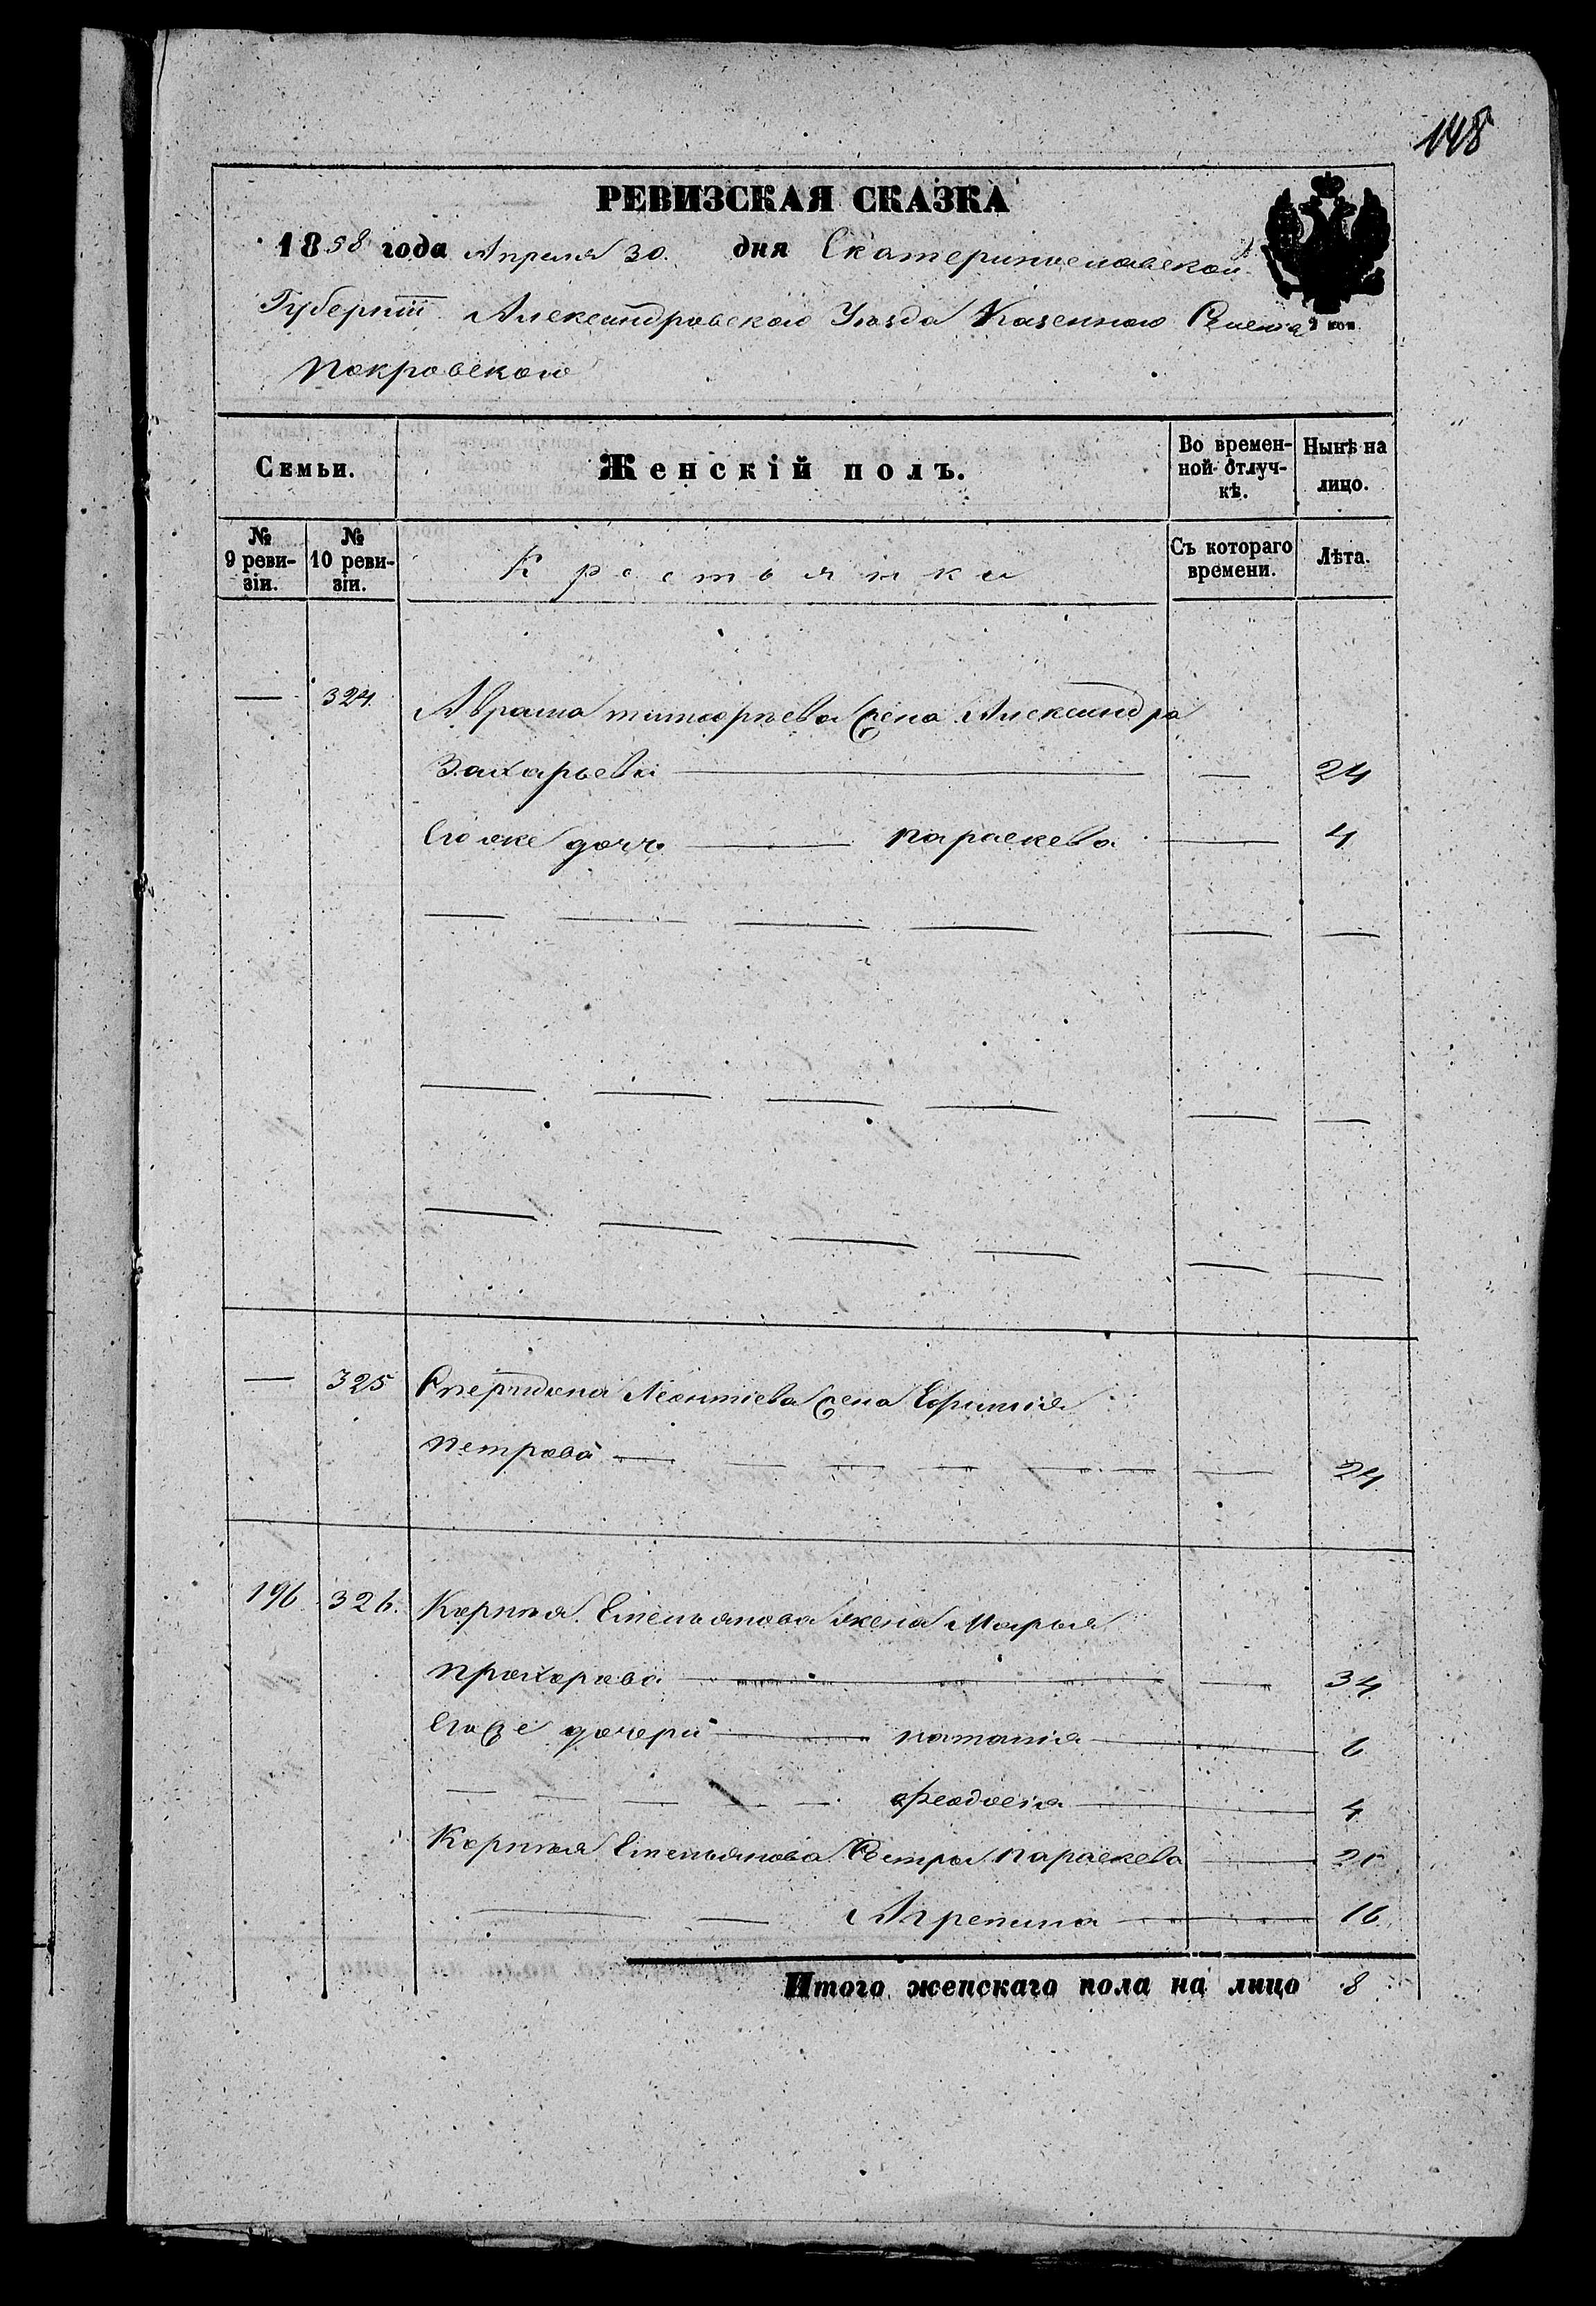 148
РЕВИЗСКАЯ СКАЗКА
1858 года Апреля 30. дня Екатеринославской
Губерніи Александровского Уѣзда Казенного Селения
Покровского
2 коп.
Семьи.
Женскій полъ.
Во времен-
ной отлуч-
кѣ.
Нынѣ на
лицо.
№
9 реви-
зіи.
№
10 реви-
зіи.
Крестьянки
Съ котораго
времени.
Лѣта.
— 324. Аврама жена Александра
Захарьева — — 24
Его же дочь — Параскева — 4
— 325 Спиридона Леонтіева жена Ефимія
Петрова — — 24
196 326. Корнѣя Емельянова жена Марья
Прохорова — — 34
Его же дочери — Наталія — 6
— Феодосія — 4
Корнѣя Емельянова Сестра Параскева —
— Агрепина — 16
Итого женскаго пола на лицо 8